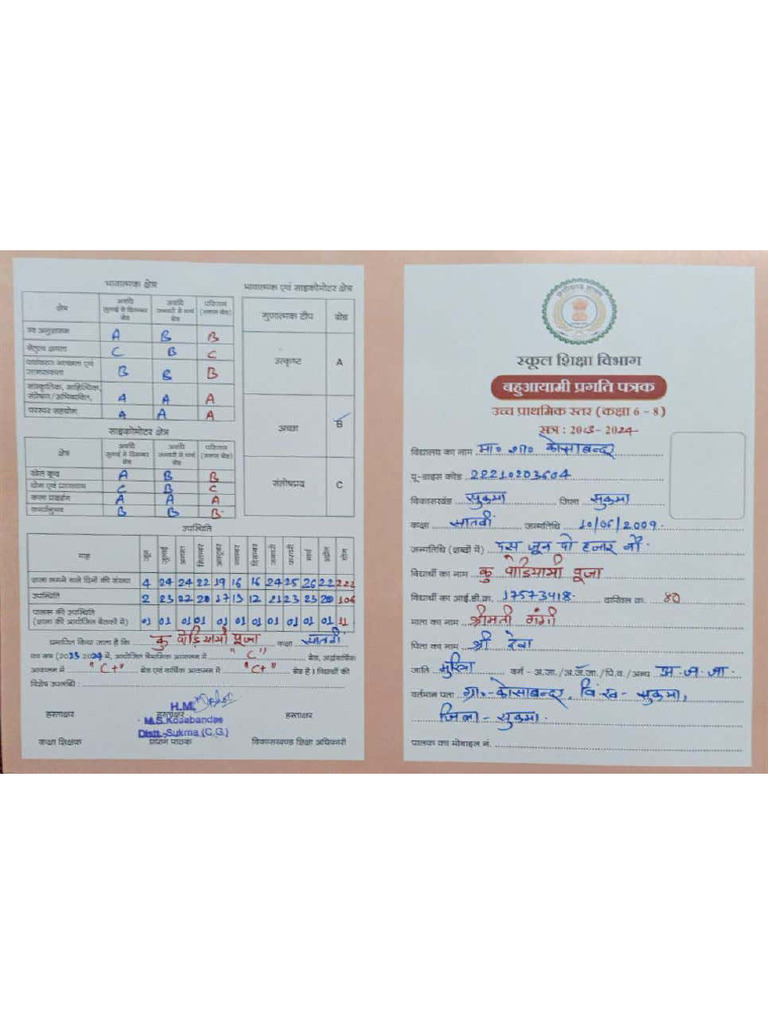 भावात्मक क्षेत्र
क्षेत्र अवधि जुलाई से दिसम्बर ग्रेड अवधि जनवरी से मार्च ग्रेड परिणाम (सकल ग्रेड)
स्व अनुशासन A B B
नेतृत्व क्षमता C B C
पर्यावरण जागरूकता एवं B B B
सांस्कृतिक, साहित्यिक, A A A
परस्पर सहयोग A A A
साइकोमोटर क्षेत्र
क्षेत्र अवधि जुलाई से दिसम्बर ग्रेड अवधि जनवरी से मार्च ग्रेड परिणाम (सकल ग्रेड)
खेल कूद A B B
योग एवं प्राणायाम C B C
कला प्रदर्शन A A A
कार्यानुभव B B B
भावात्मक एवं साइकोमोटर क्षेत्र
गुणात्मक टीप ग्रेड
उत्कृष्ट A
अच्छा B
संतोषप्रद C
उपस्थिति
माह जून जुलाई अगस्त सितम्बर अक्टूबर नवम्बर दिसम्बर जनवरी फरवरी मार्च अप्रैल योग
शाला लगने वाले दिनों की संख्या 4 24 24 22 19 16 16 24 25 26 22 222
उपस्थिति 2 23 22 20 17 13 12 21 23 23 20 106
पालक की उपस्थिति (शाला की आयोजित बैठकों में) 01 01 01 01 01 01 01 01 01 01 01 11
प्रमाणित किया जाता है कि कु पोड़ियामी पूजा कक्षा सातवी
सत्र (2023 2024) में, आयोजित त्रैमासिक आकलन में "C" ग्रेड, अर्द्धवार्षिक
आकलन में "C+" ग्रेड एवं वार्षिक आकलन में "C+" ग्रेड है। विद्यार्थी की
विशेष उपलब्धि :
हस्ताक्षर हस्ताक्षर हस्ताक्षर
H.M.
M.S. Kosabandar
Distt.-Sukma (C.G.)
कक्षा शिक्षक प्रधान पाठक विकासखण्ड शिक्षा अधिकारी
स्कूल शिक्षा विभाग
बहुआयामी प्रगति पत्रक
उच्च प्राथमिक स्तर (कक्षा 6 - 8)
सत्र : 2023 - 2024
विद्यालय का नाम मा० शा० कोसाबन्दर
यू-डाइस कोड 22210203604
विकासखंड सुकमा जिला सुकमा
कक्षा सातवी जन्मतिथि 10/06/2009
जन्मतिथि (शब्दों में) दस जून दो हजार नौ
विद्यार्थी का नाम कु पोड़ियामी पूजा
विद्यार्थी का आई.डी.क्र. 17573418 दाखिल क्र. 40
माता का नाम श्रीमती गंगी
पिता का नाम श्री देवा
जाति मुरिया वर्ग - अ.सा./अ.ज.जा./पि.व./अन्य अ.ज.जा.
वर्तमान पता ग्रा.- कोसाबन्दर, वि.ख.- सुकमा,
जिला - सुकमा
पालक का मोबाइल नं.